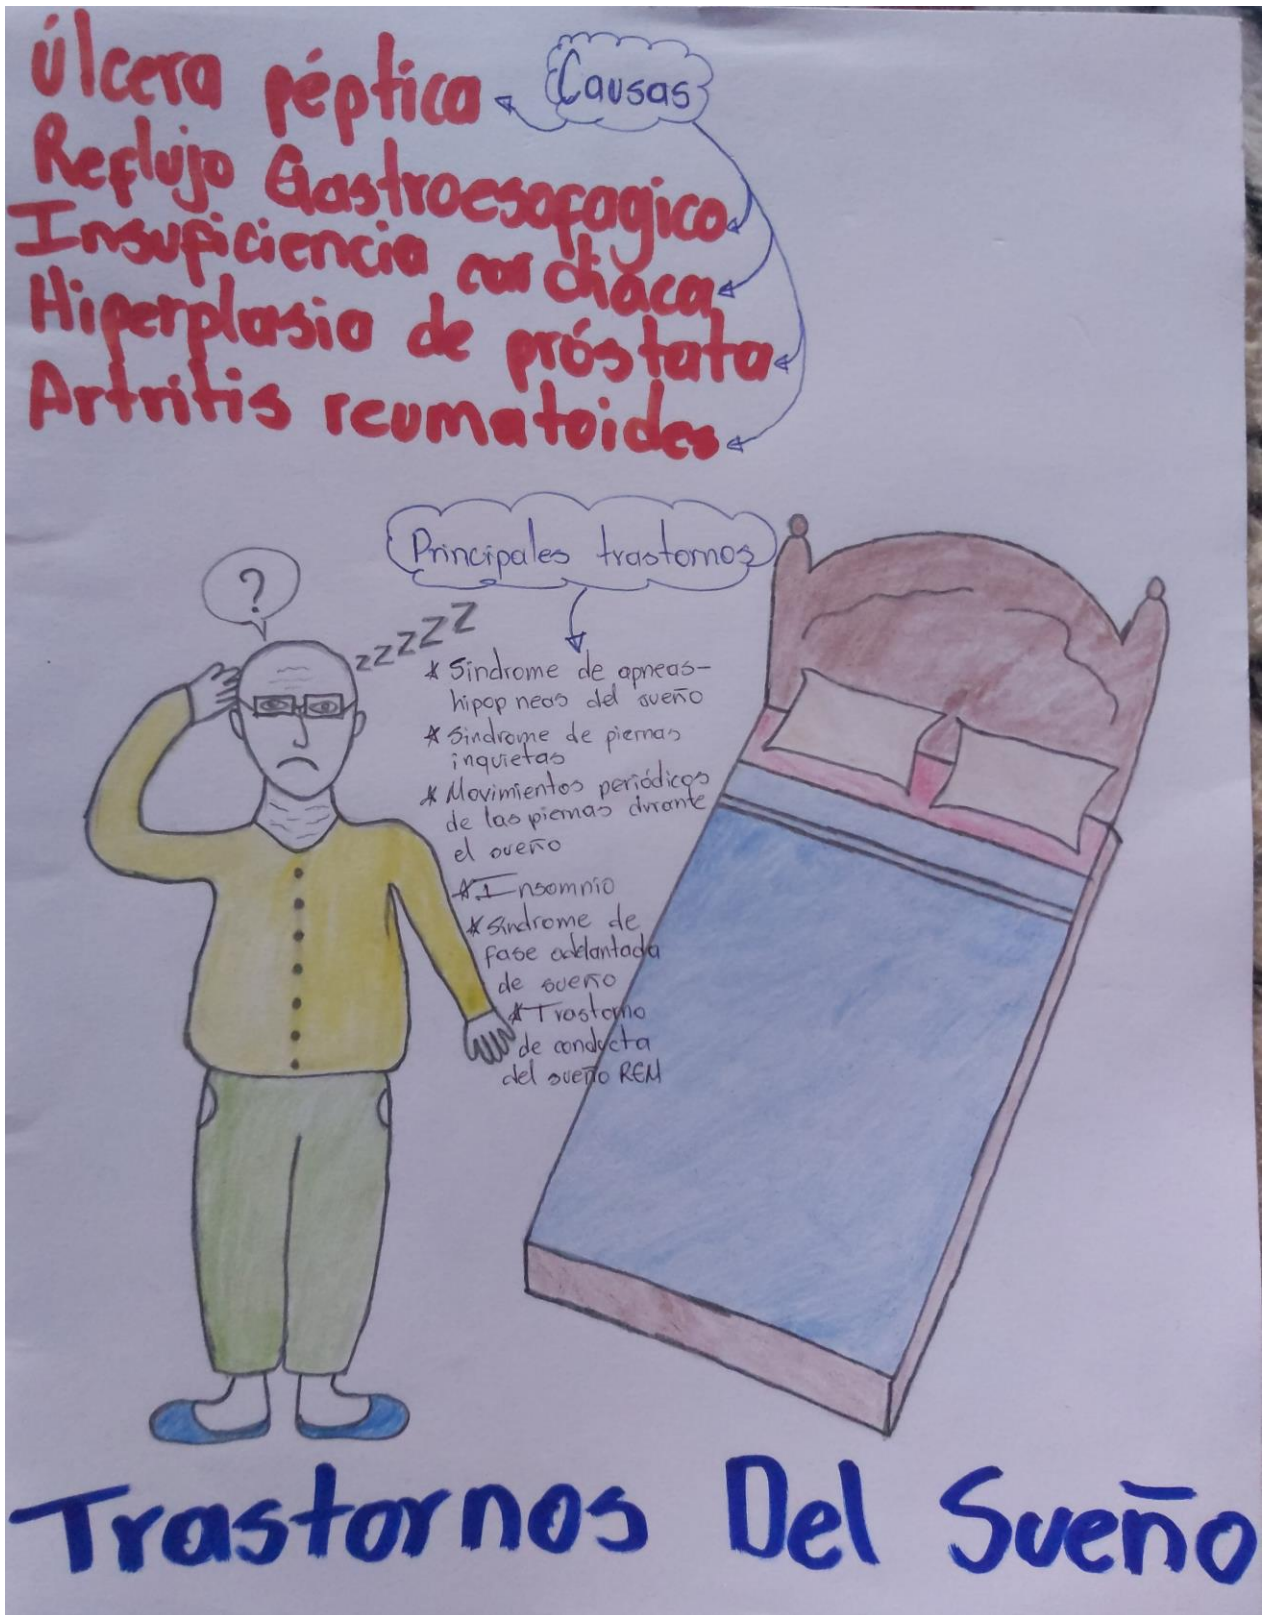 Causas
Úlcera péptica
Reflujo Gastroesofagico
Insuficiencia cardiaca
Hiperplasia de próstata
Artritis reumatoides
Principales trastornos
?
zzzzZ
* Síndrome de apneas-
hipopneas del sueño
* Síndrome de piernas
inquietas
* Movimientos periódicos
de las piernas durante
el sueño
* Insomnio
* Síndrome de
fase adelantada
de sueño
* Trastorno
de conducta
del sueño REM
Trastornos Del Sueño